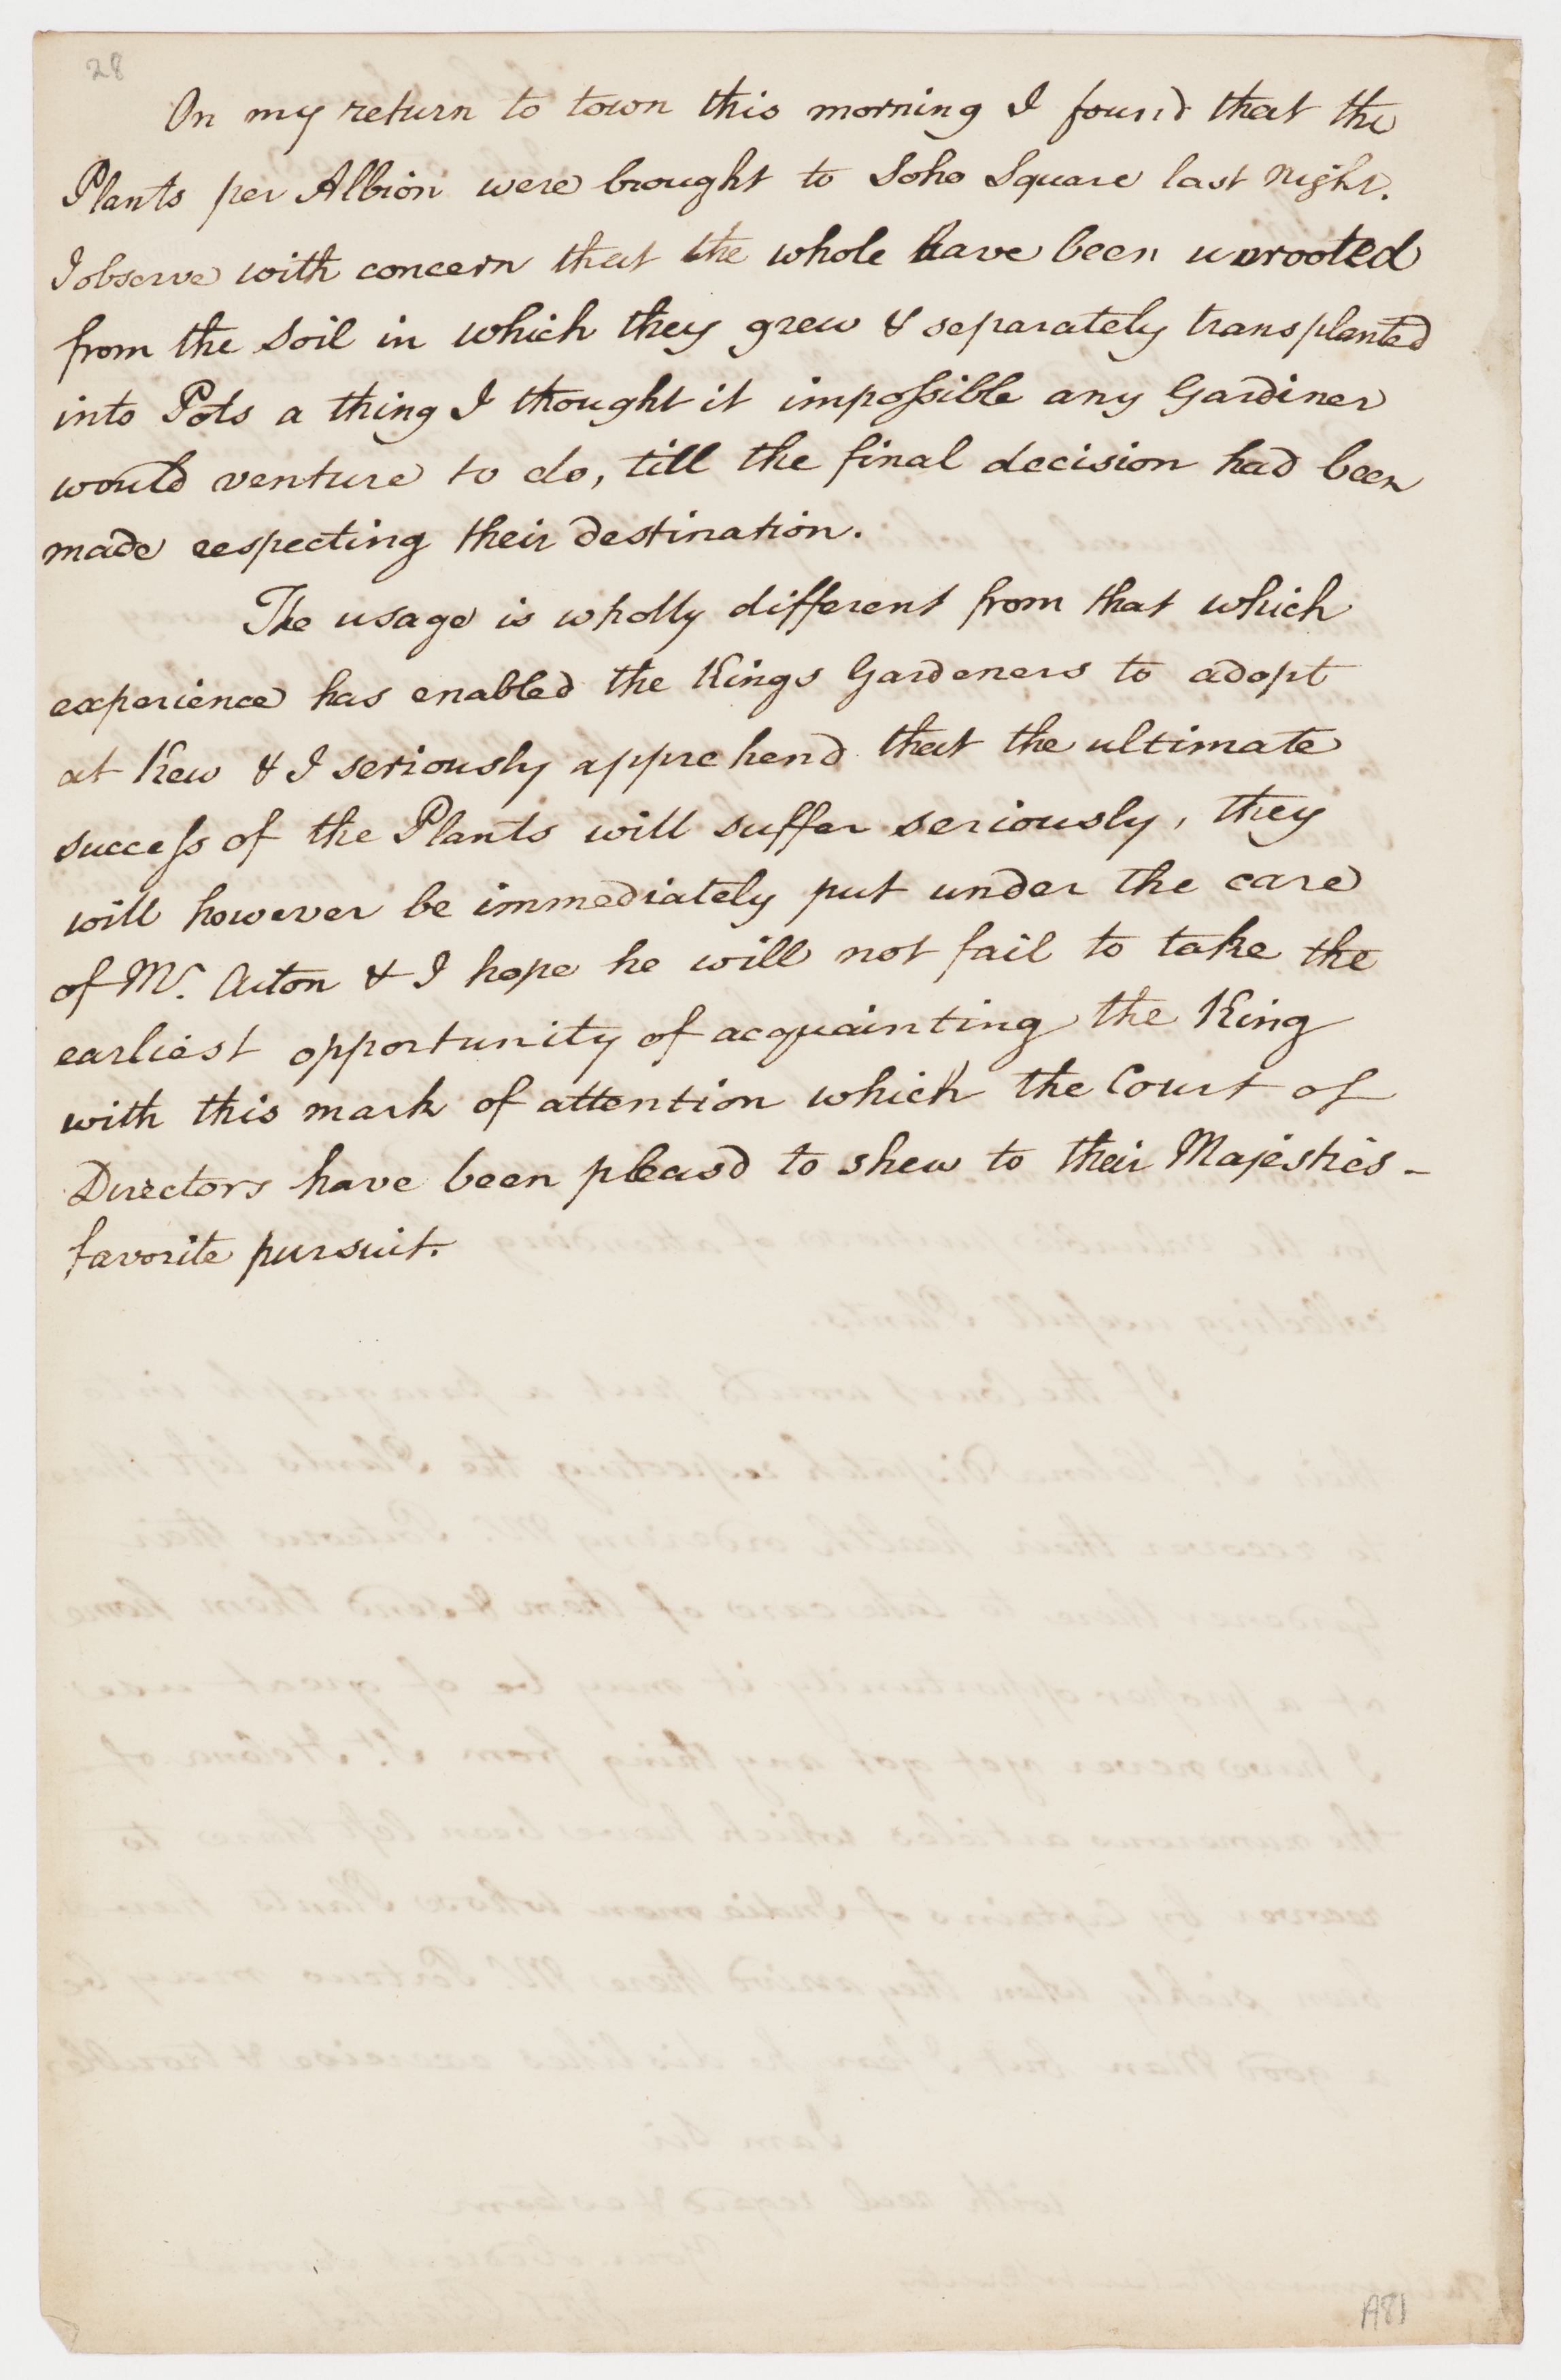 28
On my return to town this morning I found that the
Plants per Albion were brought to Soho Square last night.
I observe with concern that the whole have been uprooted
from the Soil in which they grew & separately transplanted
into Pots a thing I thought it impossible any Gardiner
would venture to do, till the final decision had been
made respecting their destination.
The usage is wholly different from that which
experience has enabled the Kings Gardeners to adopt
at Kew & I seriously apprehend that the ultimate
success of the Plants will suffer seriously, they
will however be immediately put under the care
of Mr. Aiton & I hope he will not fail to take the
earliest opportunity of acquainting the King
with this mark of attention which the Court of
Directors have been pleasd to shew to their Majesties -
favorite pursuit.
A81